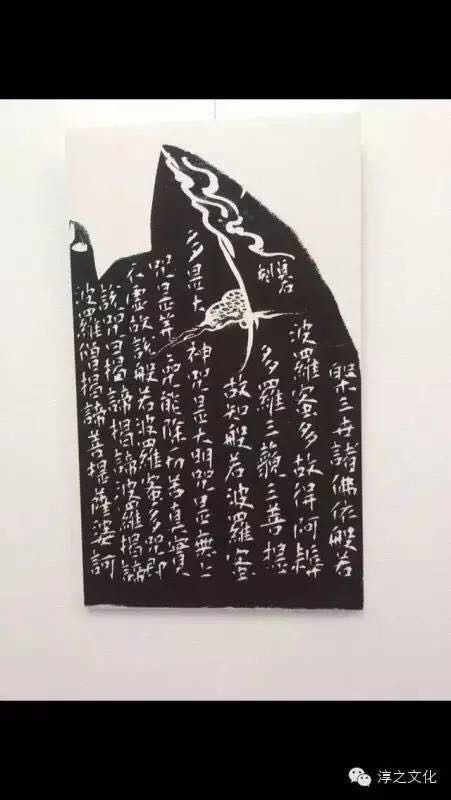 槃三世諸佛依般若
波羅蜜多故得阿耨
多羅三藐三菩提
故知般若波羅蜜
多是大神咒是大明咒是無上
咒是等咒能除一切苦真實
不虛故說般若波羅蜜多咒即
說咒曰揭諦揭諦波羅揭諦
波羅僧揭諦菩提薩婆訶
淳之文化